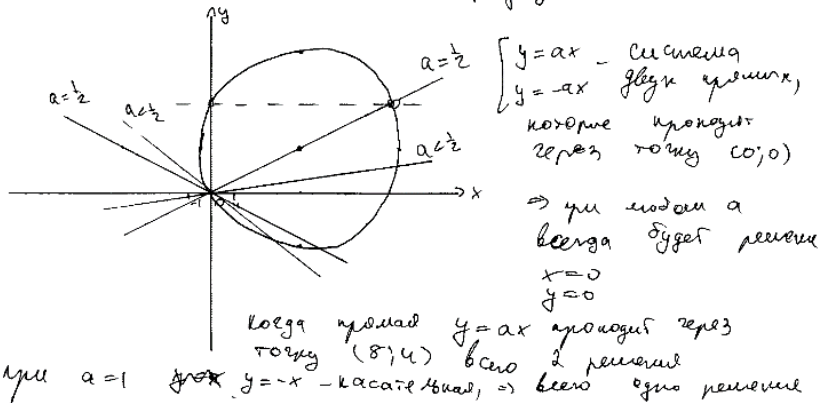 y
a = 1/2
[ y = ax - система
a = 1/2
a < 1/2
y = -ax двух прямых,
которые проходят
a < 1/2
через точку (0; 0)
x
-1
⇒ при любом a
всегда будет решение
x = 0
y = 0
когда прямая y = ax проходит через
точку (8; 4) всего 2 решения
при a = 1 y = -x - касательная, ⇒ всего одно решение